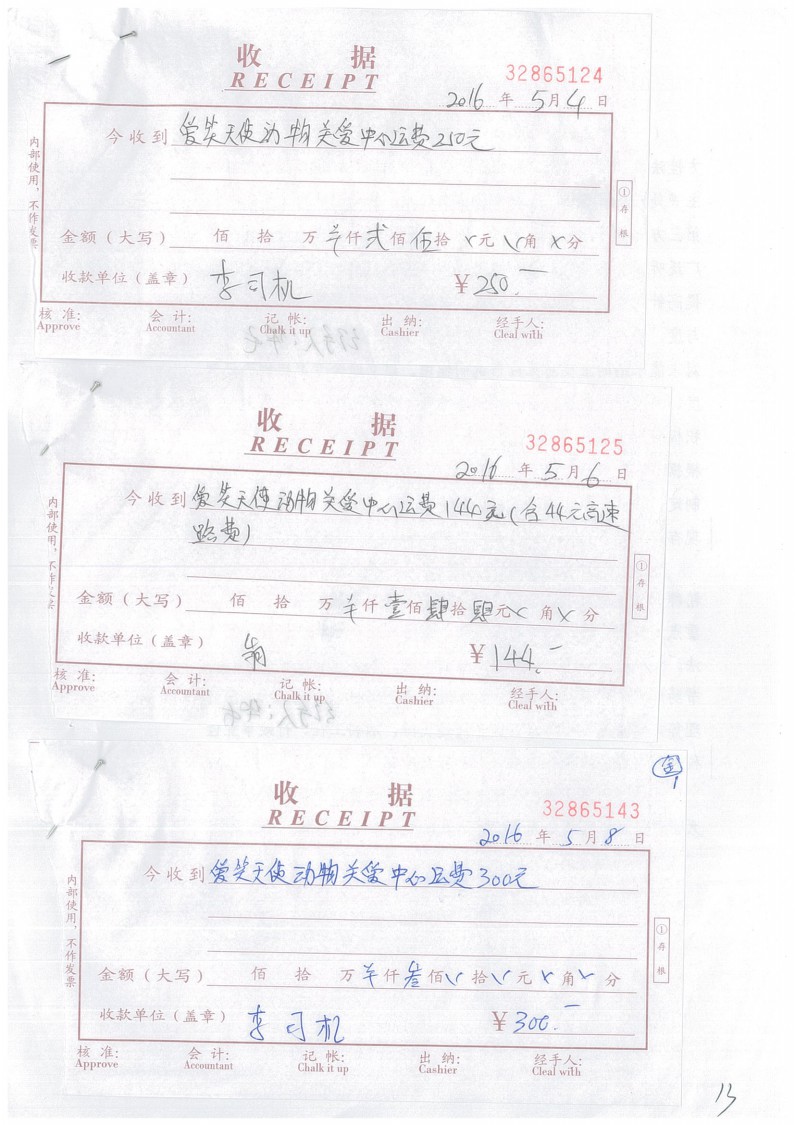 收 据
RECEIPT
32865124
2016 年 5 月 4 日
今收到 爱笑天使动物关爱中心运费250元
内部使用，不作发票
①存根
金额（大写） 佰 拾 万 羊 仟 贰 佰 伍 拾 元 角 分
收款单位（盖章） 李司机 ¥250.—
核 准: 会 计: 记 帐: 出 纳: 经手人:
Approve Accountant Chalk it up Cashier Cleal with
收 据
RECEIPT
32865125
2016 年 5 月 6 日
今收到 爱笑天使动物关爱中心运费144元(含44元高速
路费)
内部使用，不作发票
①存根
金额（大写） 佰 拾 万 羊 仟 壹 佰 肆 拾 肆 元 角 分
收款单位（盖章） ¥144.—
核 准: 会 计: 记 帐: 出 纳: 经手人:
Approve Accountant Chalk it up Cashier Cleal with
收 据
RECEIPT
32865143
2016 年 5 月 8 日
今收到 爱笑天使动物关爱中心运费300元
内部使用，不作发票
①存根
金额（大写） 佰 拾 万 羊 仟 叁 佰 拾 元 角 分
收款单位（盖章） 李司机 ¥300.—
核 准: 会 计: 记 帐: 出 纳: 经手人:
Approve Accountant Chalk it up Cashier Cleal with
13